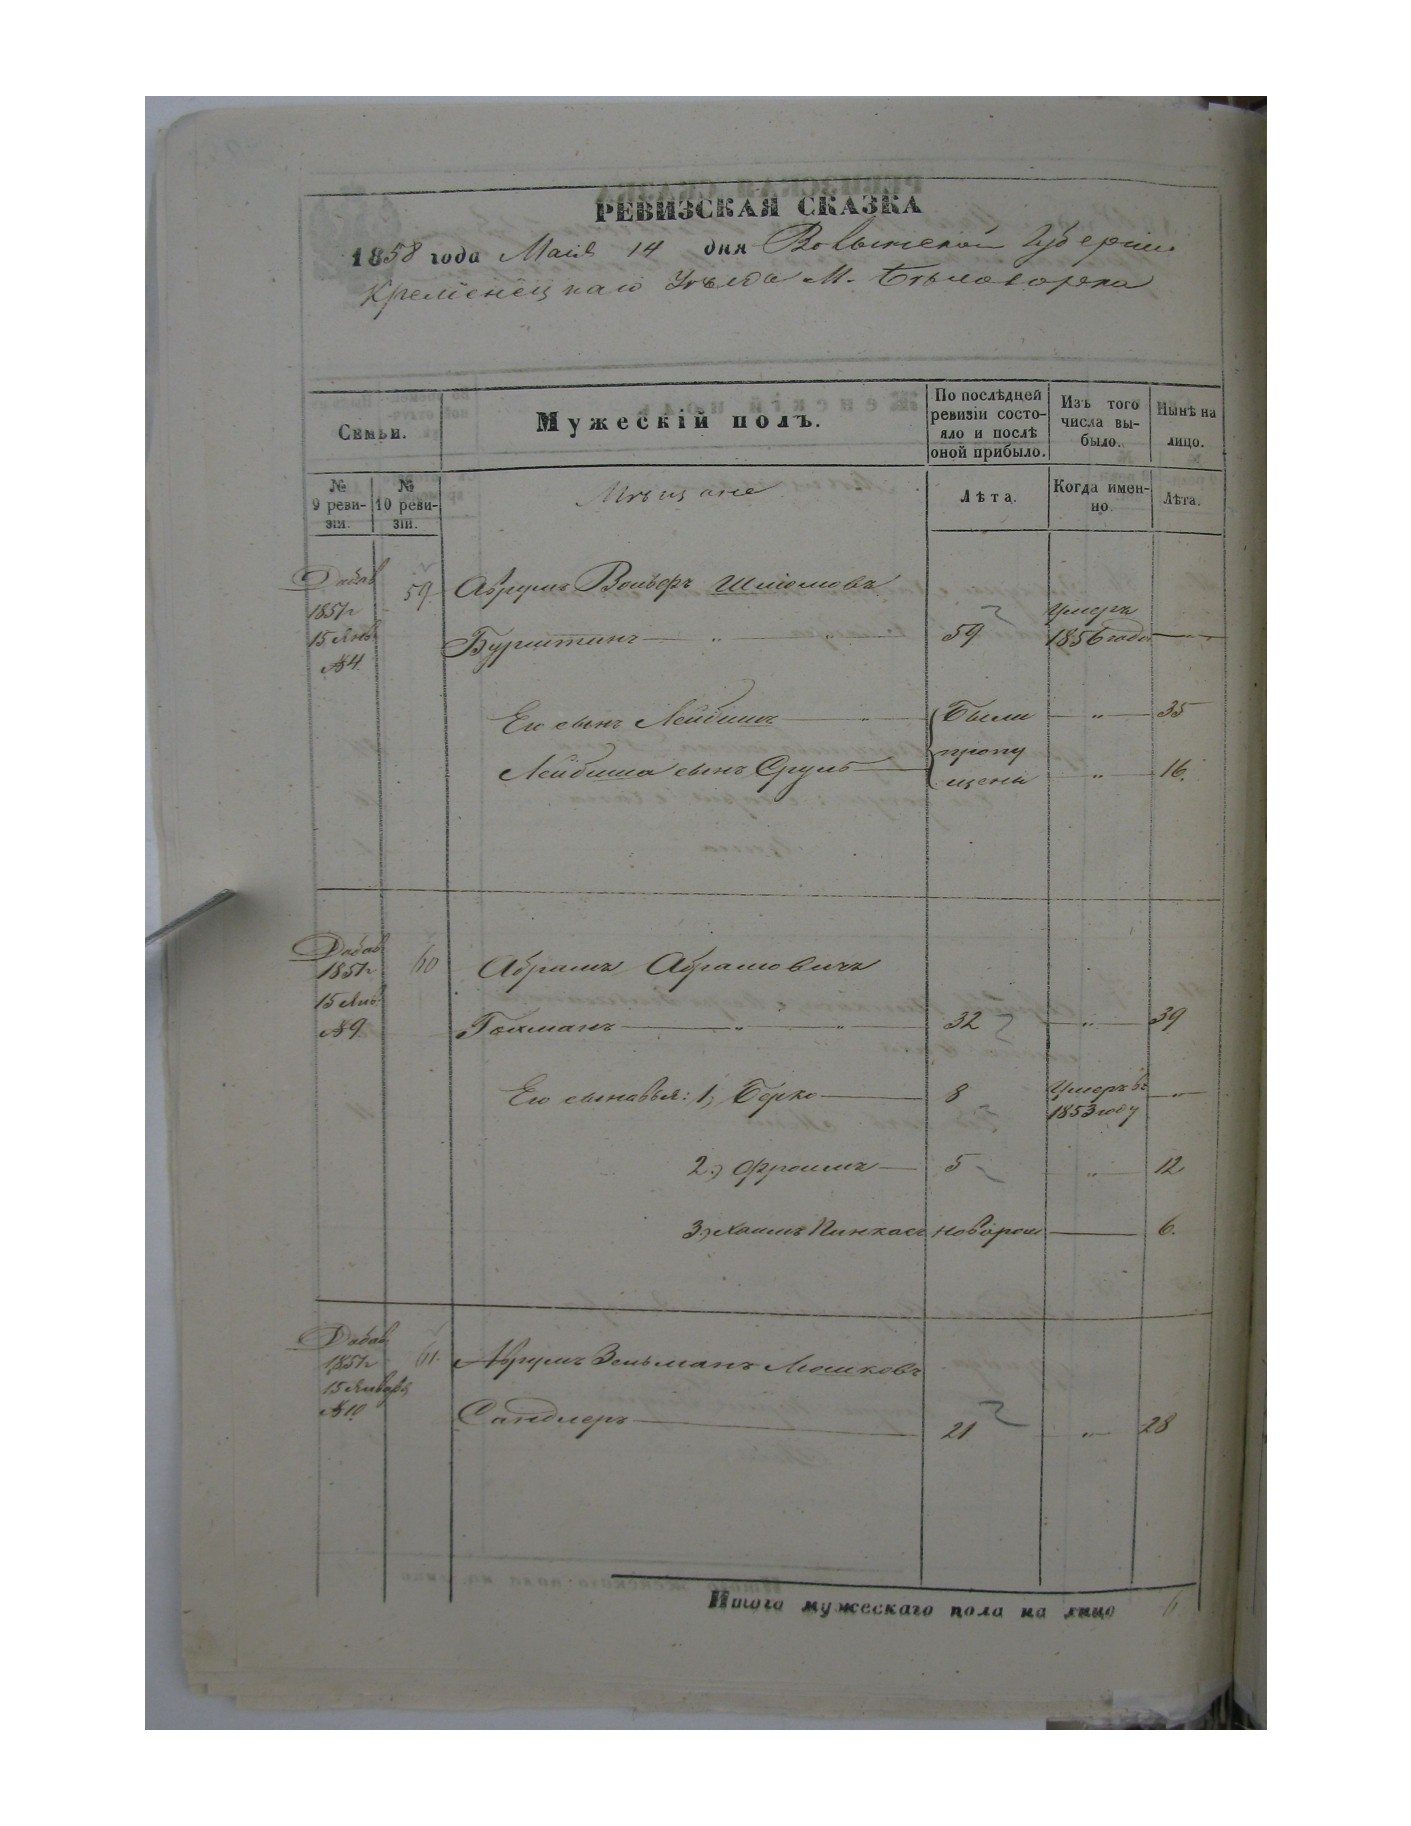 РЕВИЗСКАЯ СКАЗКА
1858 года Маия 14 дня Волынской Губернии
Кременецкаго Уѣзда М. Бѣлозорка
Семьи.
Мужескій полъ.
По послѣдней ревизіи состо-
яло и послѣ
оной прибыло.
Изъ того
числа вы-
было.
Нынѣ на
лицо.
№
9 реви-
зіи.
№
10 реви-
зіи.
Мѣщане
Лѣта.
Когда имен-
но.
Лѣта.
Добав
1851 г
15 Янв
№ 4.
59. Аврумъ Вольфъ Шліомовъ
Бурштинъ — „ — „ — 59 Умеръ 1856 года — „ —
Его сынъ Лейбишъ — „ — Были — „ — 35
Лейбиша сынъ Сруль — пропу
щены — „ — 16.
Добав
1851 г
15 Янв.
№ 9.
60 Абрамъ Абрамовичъ
Гохманъ — „ — „ — 32 — „ — 39
Его сыновья: 1, Берко — 8 Умеръ въ 1853 году — „ —
2, Фроимъ — 5 — „ — 12
3, Хаимъ Пинкасъ новорож — 6.
Добав
1851 г
15 Января
№ 10.
61. Аврумъ Зельманъ Мошковъ
Сандлеръ — 21 — „ — 28
Итого мужескаго пола на лицо 6